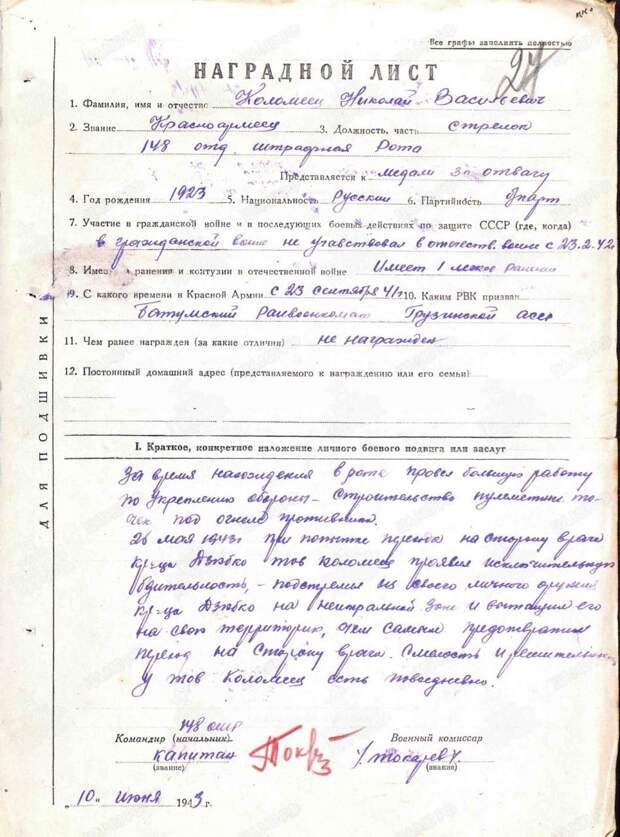 Все графы заполнять полностью
27
НАГРАДНОЙ ЛИСТ
1. Фамилия, имя и отчество Коломеец Николай Васильевич
2. Звание Красноармеец 3. Должность, часть Стрелок
148 отд. штрафная рота
Представляется к медали за отвагу
4. Год рождения 1923 5. Национальность Русский 6. Партийность б/парт
7. Участие в гражданской войне и последующих боевых действиях по защите СССР (где, когда)
в гражданской войне не учавствовал в отечеств. войне с 23.2.42
8. Имеет ранения и контузии в отечественной войне Имеет 1 легкое ранение
9. С какого времени в Красной Армии с 23 сентября 41г 10. Каким РВК призван
Батумский райвоенкомат Грузинской асср
11. Чем ранее награжден (за какие отличия) не награжден
12. Постоянный домашний адрес (представляемого к награждению или его семьи)
ДЛЯ ПОДШИВКИ
I. Краткое, конкретное изложение личного боевого подвига или заслуг
За время нахождения в роте провел большую работу
по укреплению обороны – строительство пулеметных то-
чек под огнем противника.
26 мая 1943г при попытке перехода на сторону врага
кр-ца Дзюбко тов Коломеец проявил исключительную
бдительность, – подстрелил из своего личного оружия
кр-ца Дзюбко на нейтральной зоне и вытащил его
на свою территорию, чем самым предотвратил
переход на сторону врага. Смелость и решительность
у тов Коломеец есть повседневно.
148 ошр
Командир (начальник) Военный комиссар
капитан /Токарев/
(звание) (звание)
"10" июня 1943 г.